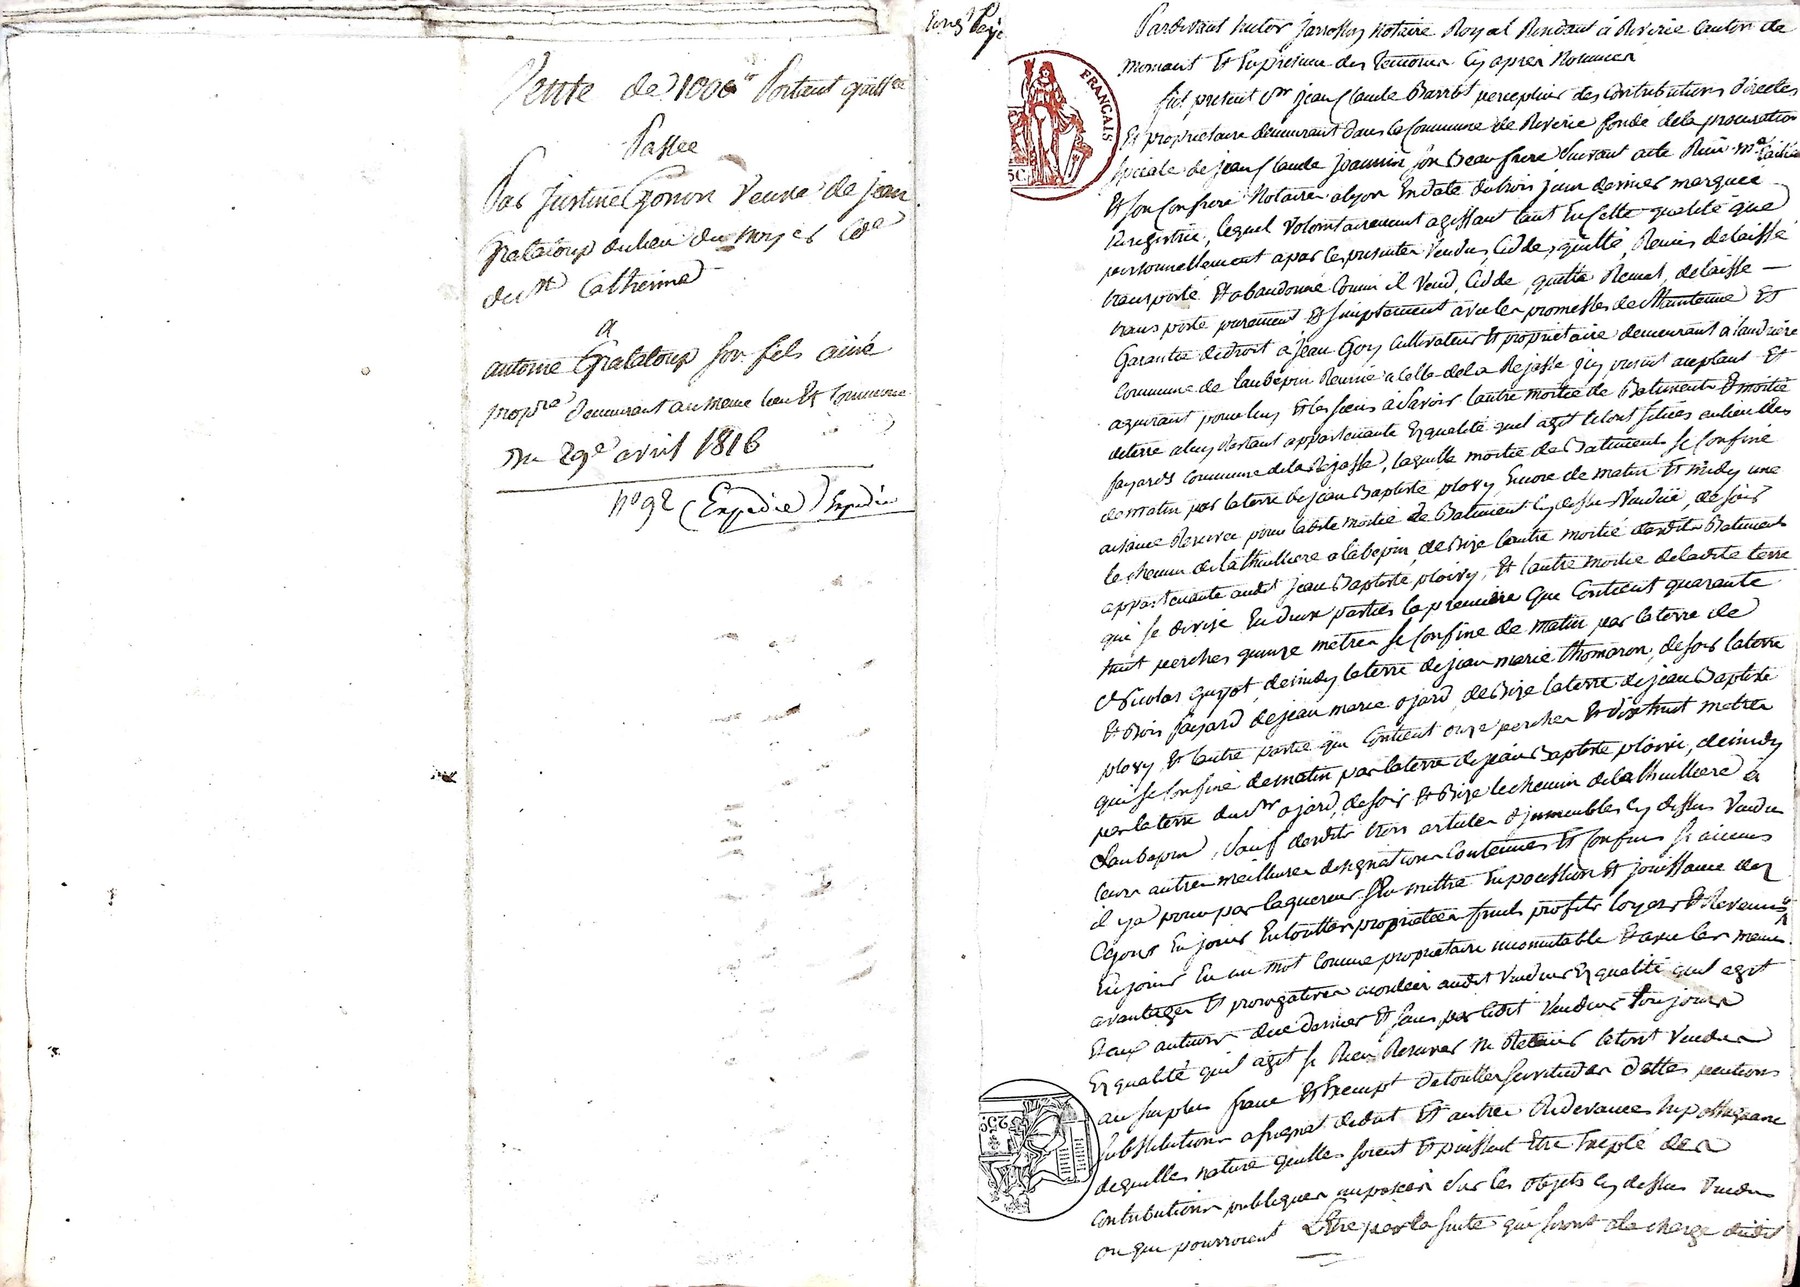 Vente de 1000 # Portant quitt.ce
Passée
Par Justine Gonon Veuve de jean
Grataloup du lieu du Noyer C.de
de S.te Catherine
a
antoine Grataloup son fils ainé
propre demeurant au meme lieu Et Commune
Du 29e avril 1816
N° 92 (Expedié) Expedié
Pardevant hector Jarrosson Notaire Royal Residant à Riverie Canton de
Mornant Et En presence des Temoins Cy apres Nommés
fut present S.r Jean Claude Barrot percepteur des Contributions directes
Et proprietaire demeurant dans la Commune de Riverie fondé de la procuration
speciale de jean Claude Joannin son Beau frere suivant acte Reçu M.e
Et son Confrere Notaires a lyon En date du trois juin dernier
Enregistrée, lequel volontairement agissant tant En Cette qualité que
personnellement a par les presentes Vendu, Cédé, quitté, Remis delaissé
transporté Et abandonné Comme il Vend, Cède, quitte Remet, delaisse —
transporte purement Et simplement avec les promesses de Maintenue Et
Garantie de droit a Jean Goy Cultivateur Et proprietaire demeurant a
Commune de laubepin Reunie a Celle de la Rejasse icy present acceptant Et
aquerant pour luy Et les siens a Savoir lautre moitié de Batiments Et moitié
de terre a luy Vendant appartenante En qualité quil agit le tout situés au lieu des
fayards Commune de la Rejasse, laquelle moitié de Batiments se Confine
de matin par la terre de jean Baptiste ployy, Encore de matin Et midy une
aisance Reservée pour ladite moitié de Batiment Cy dessus Vendue, de soir
le chemin de la thuilliere a laubepin, de Bize lautre moitié desdits Batiments
appartenante audit Jean Baptiste ploivy, Et lautre moitié de ladite terre
qui se divise En deux parties la premiere qui Contient quarante
huit perches quinze metres se Confine de matin par la terre de
Nicolas guyot, de midy la terre de jean marie thomaron, de soir la terre
Et Bois fayard de jean marie ojard, de Bize la terre de jean Baptiste
ployy Et lautre partie qui Contient onze perches Et dix huit metres
qui se Confine de matin par la terre de jean Baptiste ploivie, de midy
par la terre du S.r ojard, de soir Et Bize le chemin de la thuilliere à
laubepin, Sauf desdits trois articles d'immeubles Cy dessus Vendu
leurs autres meilleures designations Contenues Et Confins si aucuns
il y a pour par laquereur Se mettre En possession Et jouissance dez
Cejour En jouir En toutte proprietée fruits profits loyers Et Revenus
En jouir En un mot Comme proprietaire incomutable Et avec les memes
avantages Et prerogatives accordés audit Vendeur En qualité quil agit
Et aux auteurs de Ce dernier Et sans par ledit Vendeur toujours
En qualité quil agit se Rien Reserver ni Retenir letout Vendu
au surplus franc Et Exempt de touttes servitudes dettes pentions
substitutions assignat dedot Et autres Redevances hypothequaire
de quelles nature quelles soient Et puissent Etre Excepté des
Contributions publiques imposées Sur les objets Cy dessus Vendus
ou qui pourroient L'Etre par la suite qui seront a la charge dudit
FRANÇAIS